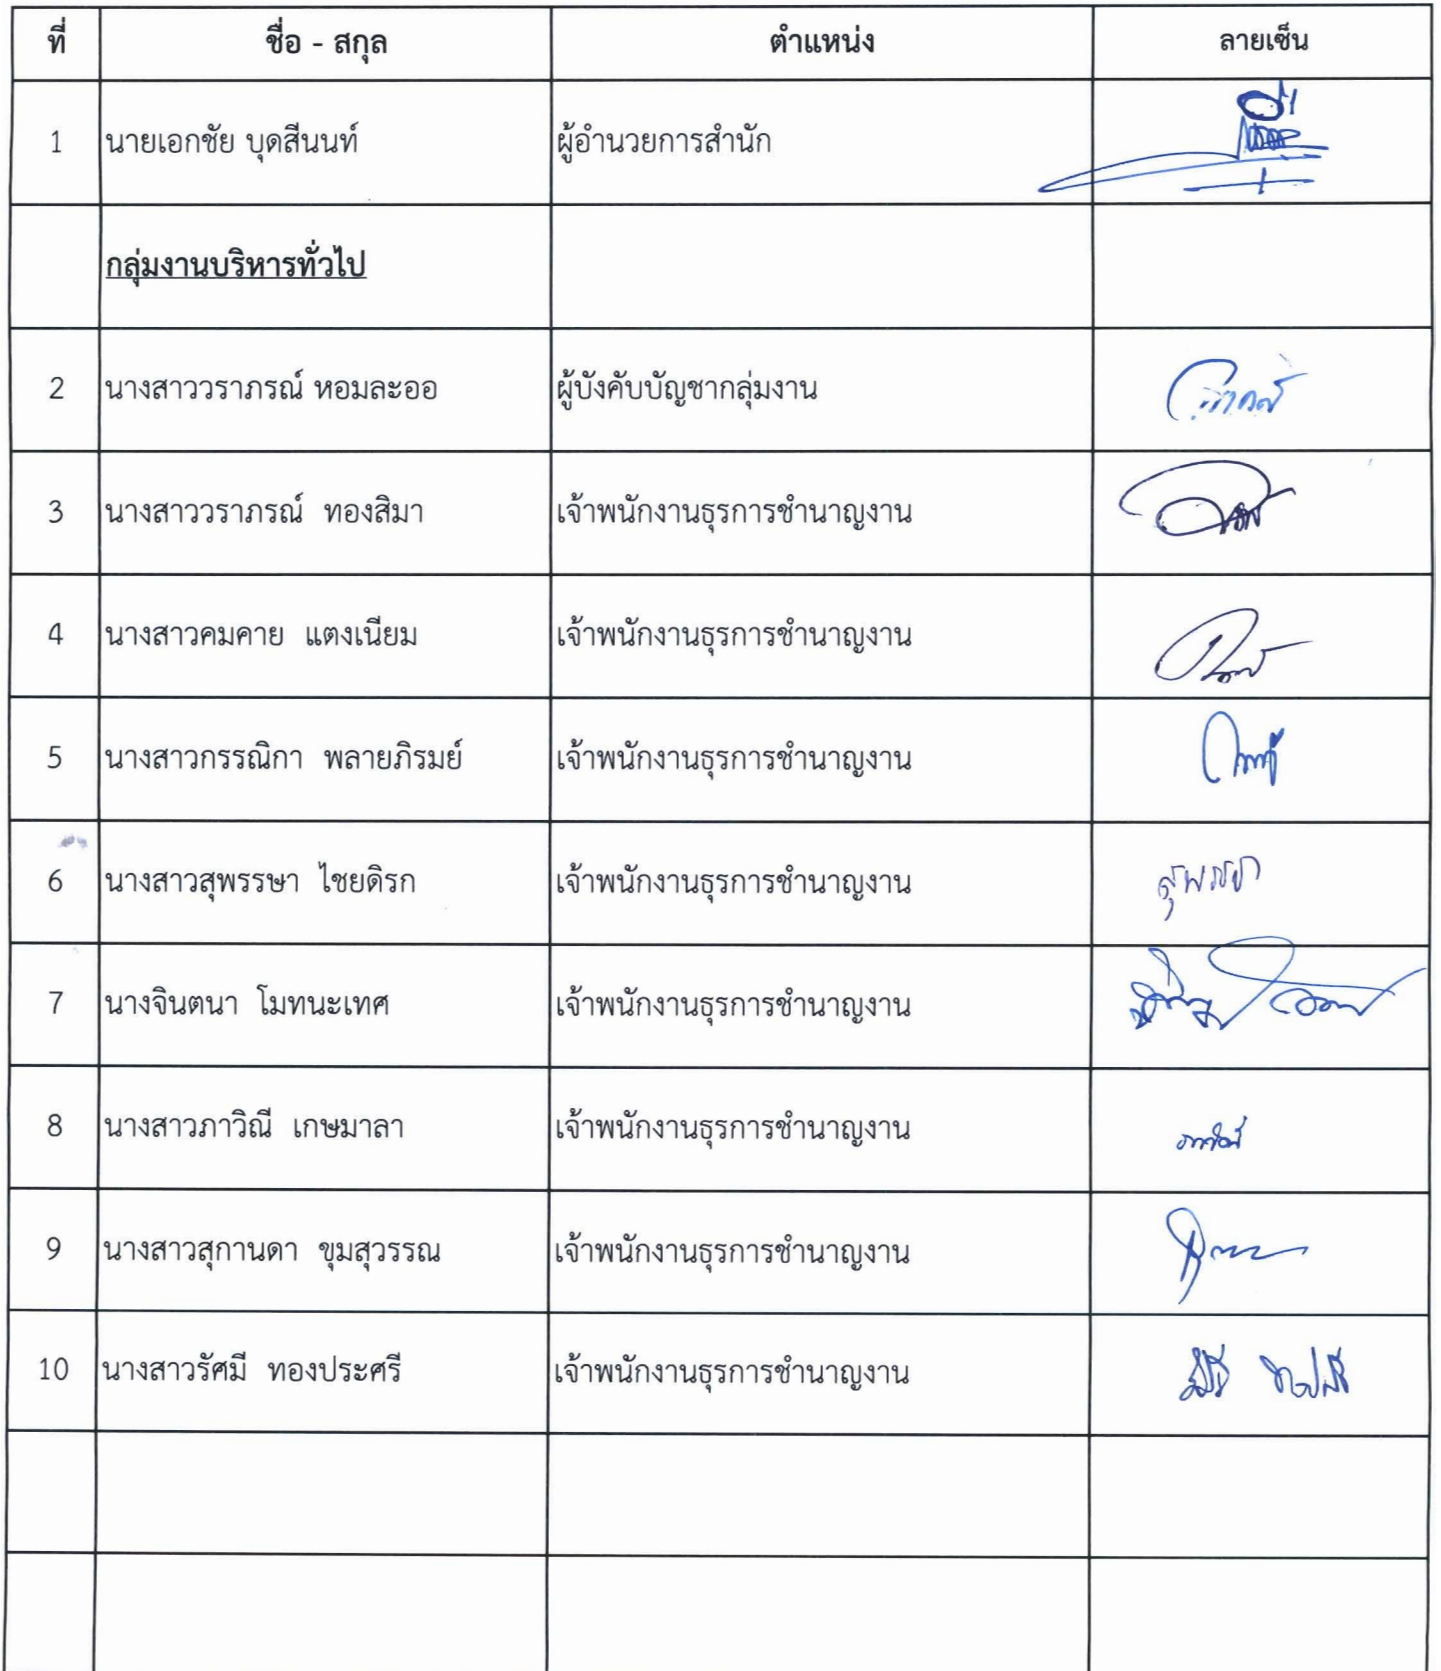 ที่ ชื่อ - สกุล ตำแหน่ง ลายเซ็น
1 นายเอกชัย บุดสีนนท์ ผู้อำนวยการสำนัก
กลุ่มงานบริหารทั่วไป
2 นางสาววราภรณ์ หอมละออ ผู้บังคับบัญชากลุ่มงาน
3 นางสาววราภรณ์ ทองสิมา เจ้าพนักงานธุรการชำนาญงาน
4 นางสาวคมคาย แตงเนียม เจ้าพนักงานธุรการชำนาญงาน
5 นางสาวกรรณิกา พลายภิรมย์ เจ้าพนักงานธุรการชำนาญงาน
6 นางสาวสุพรรษา ไชยดิรก เจ้าพนักงานธุรการชำนาญงาน สุพรรษา
7 นางจินตนา โมทนะเทศ เจ้าพนักงานธุรการชำนาญงาน
8 นางสาวภาวิณี เกษมาลา เจ้าพนักงานธุรการชำนาญงาน
9 นางสาวสุกานดา ขุมสุวรรณ เจ้าพนักงานธุรการชำนาญงาน
10 นางสาวรัศมี ทองประศรี เจ้าพนักงานธุรการชำนาญงาน